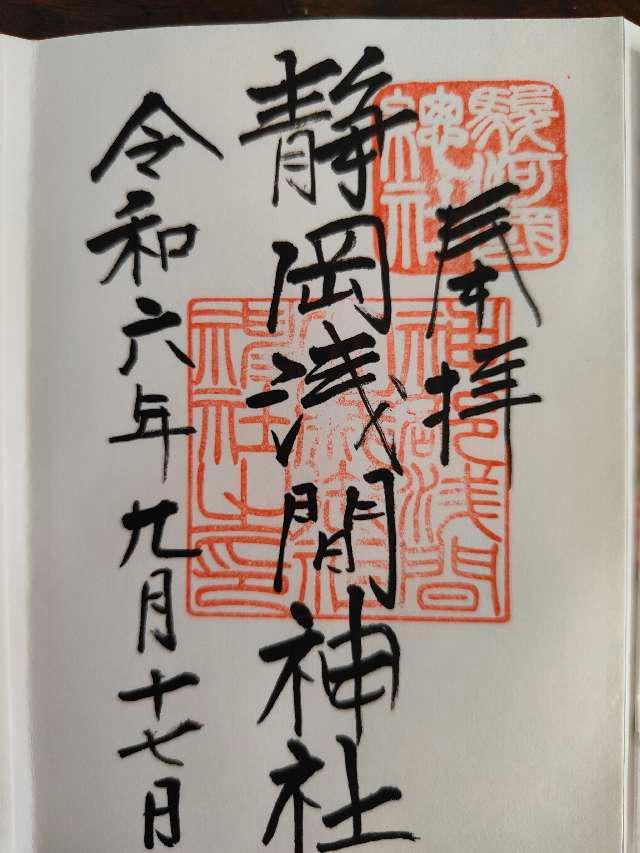 奉拝
駿河國
總社
静岡浅間神社
令和六年九月十七日